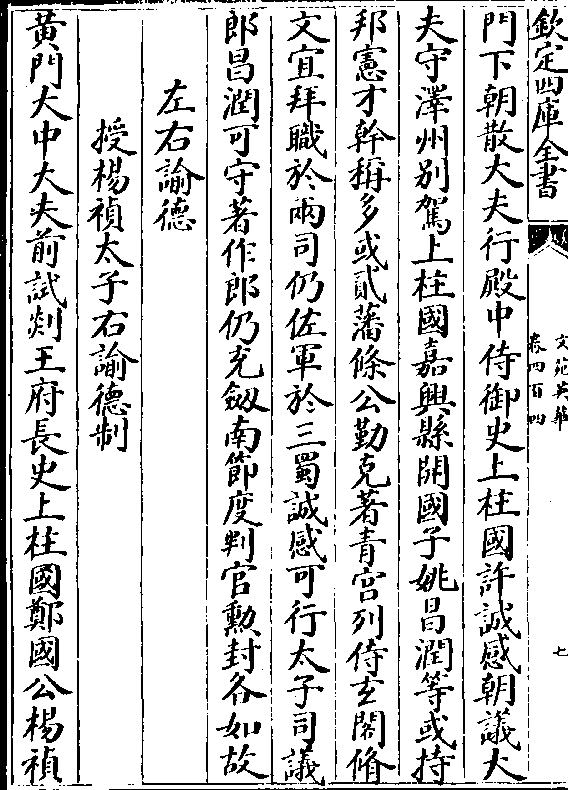 欽定四庫全書
文苑英華
卷四百四
七
門下朝散大夫行殿中侍御史上柱國許誠感朝議大
夫守澤州别駕上柱國嘉興縣開國子姚昌潤等或持
邦憲才幹稱多或貳藩條公勤克著青宫列侍玄閣脩
文宜拜職於兩司仍佐軍於三蜀誠感可行太子司議
郎昌潤可守著作郎仍充劔南節度判官勲封各如故
左右諭德
授楊禎太子右諭德制
黄門大中大夫前試剡王府長史上柱國鄭國公楊禎